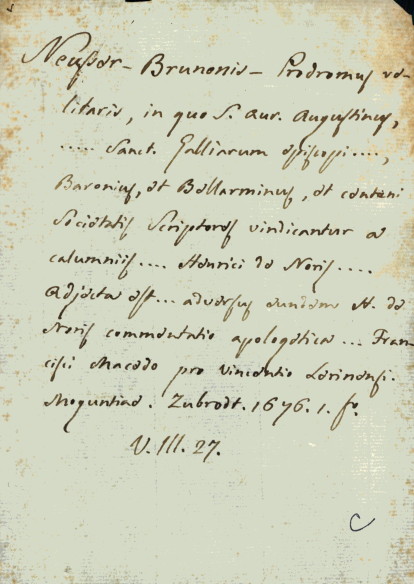 Neusser - Brunonis - Prodromus ve-
litaris, in quo S. Aur. Augustinus,
..... Sanct. Galliarum episcopi ....,
Baronius, et Bellarminus, et centeni
Societatis Scriptores vindicantur a
calumniis .... Henrici de Noris ....
Adjecta est... adversus eundem H. de
Noris commentatio apologetica ... Fran-
cisci Macedo pro Vincentio Lerinensi.
Moguntiae. Zubrodt. 1676. 1. fo.
V. III. 27.
C